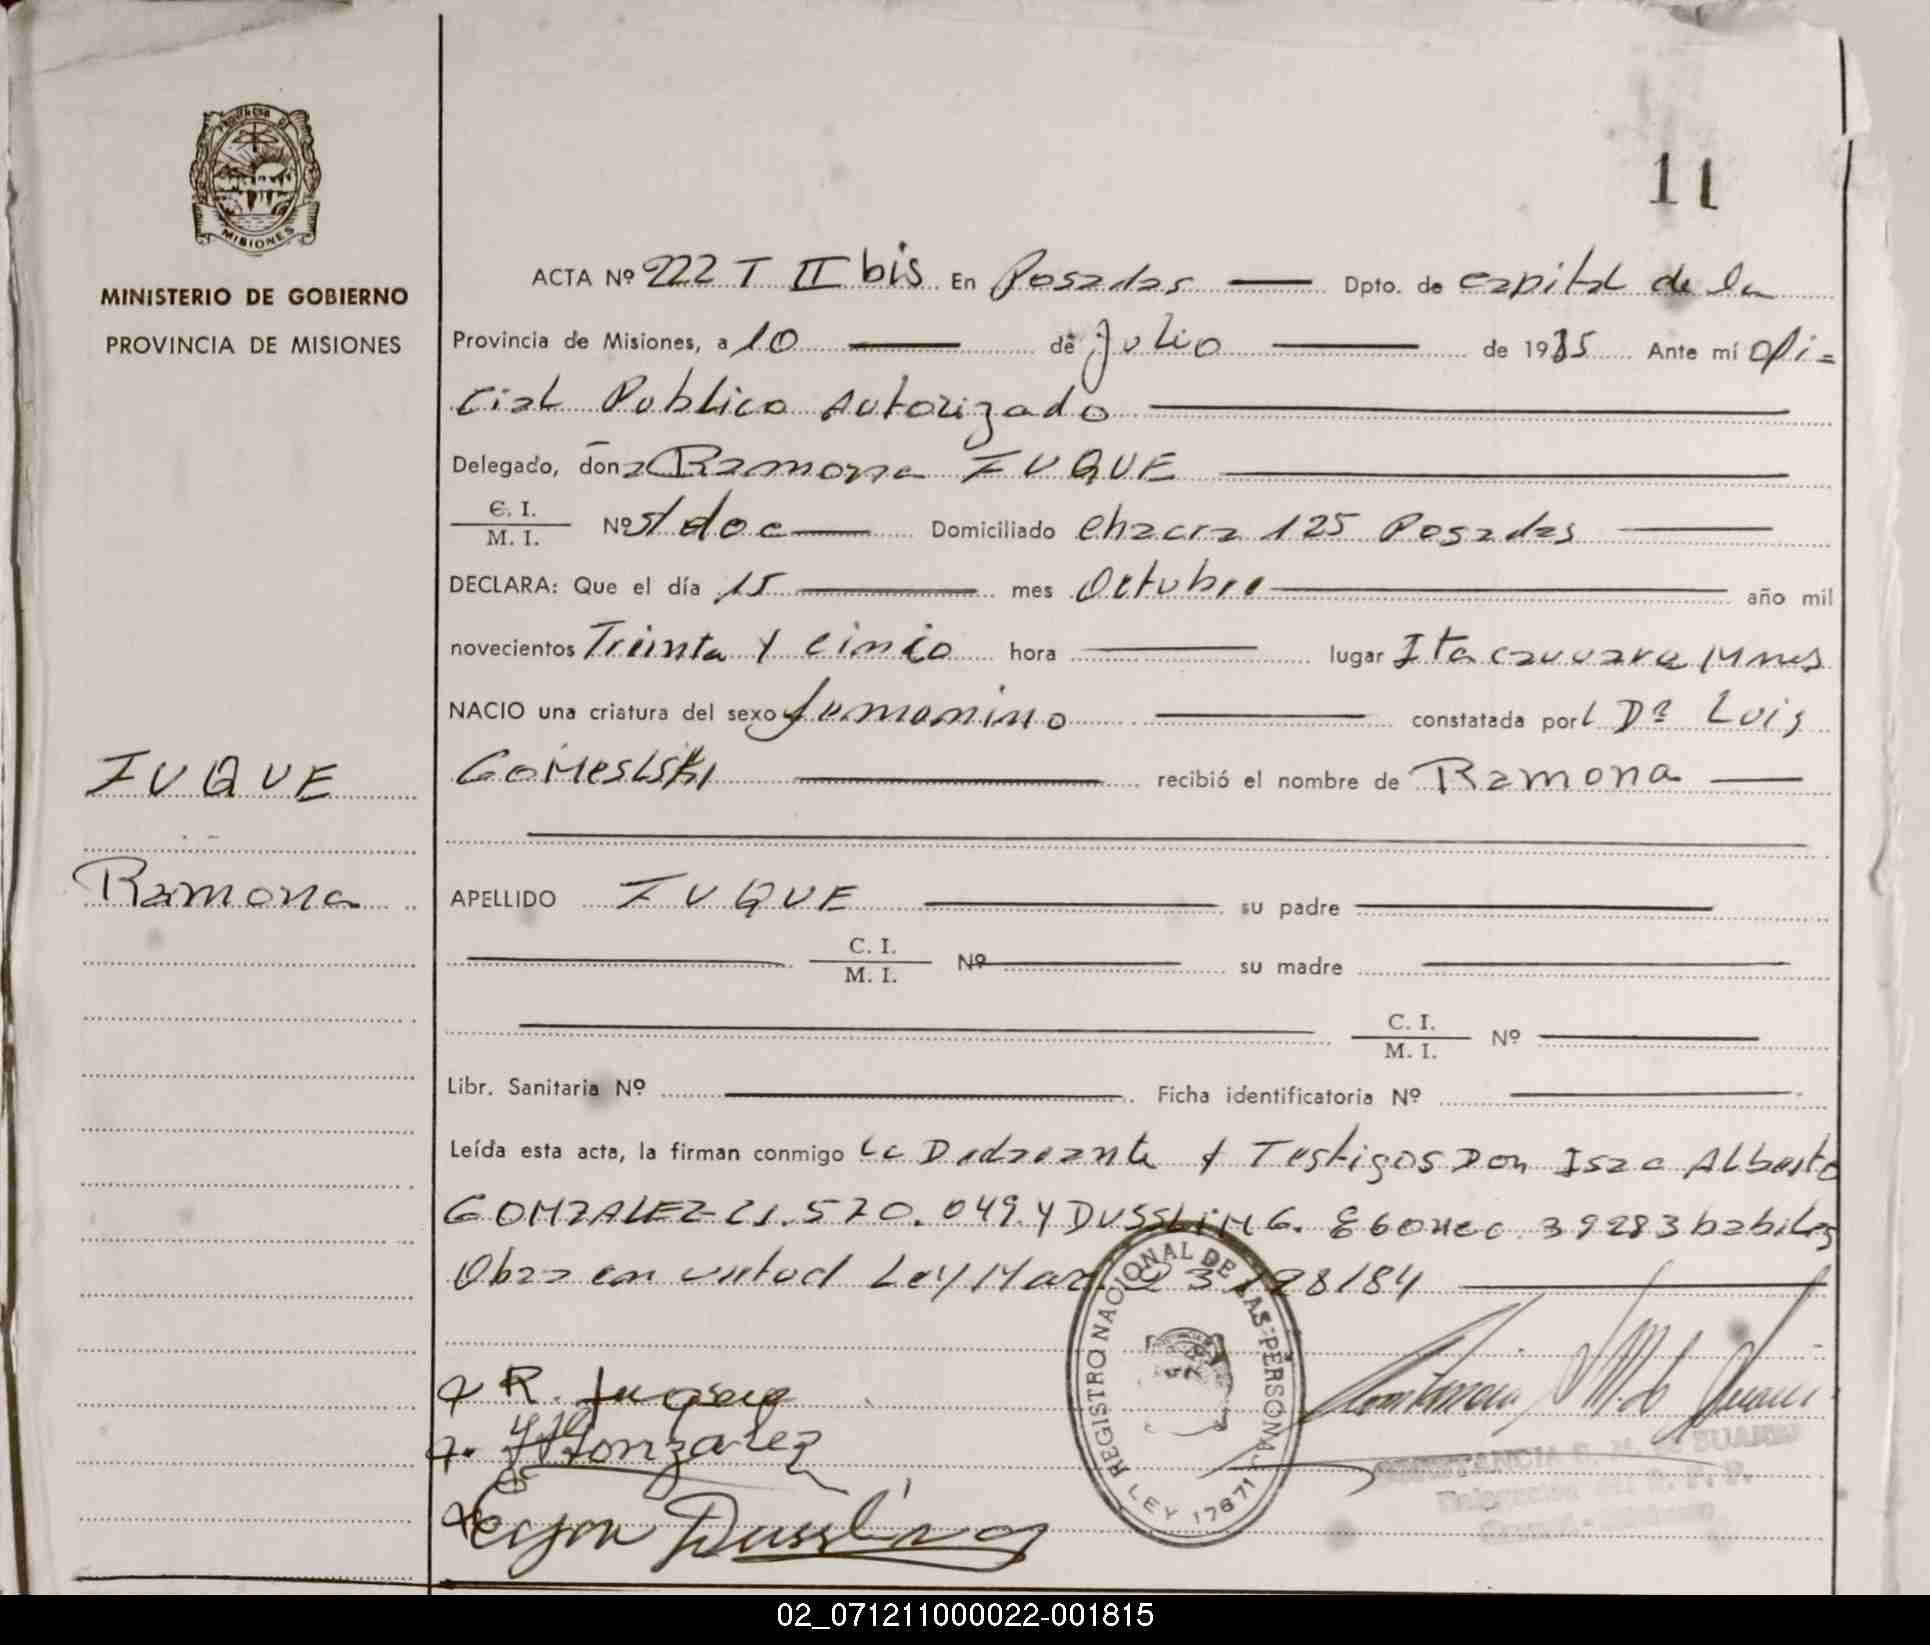 PROVINCIA DE
MISIONES
MINISTERIO DE GOBIERNO
PROVINCIA DE MISIONES
11
ACTA Nº 222 T II bis En Posadas Dpto. de capital de la
Provincia de Misiones, a 10 de Julio de 1985 Ante mí ofi=
cial Publico Autorizado
Delegado, doña Ramona IUQUE
C. I.
M. I.
Nº s/doc Domiciliado chacra 125 Posadas
DECLARA: Que el día 15 mes Octubre año mil
novecientos Treinta y cinco hora lugar Itacauvare Mnes
NACIO una criatura del sexo femenino constatada por l Dº Luis
recibió el nombre de Ramona
IUQUE
Ramona
APELLIDO IUQUE su padre
C. I.
M. I.
Nº su madre
C. I.
M. I.
Nº
Libr. Sanitaria Nº Ficha identificatoria Nº
Leída esta acta, la firman conmigo la Declarante y Testigos Don Isac Alberto
GONZALEZ 21.570.049 y DUSSLING 39283 habiles
Obra en virtud Ley Nac. 23128/84
R.
Gonzalez
Dussling
REGISTRO NACIONAL DE LAS PERSONAS
LEY 17671
CONSTANCIA S. M. de SUAREZ
02_071211000022-001815